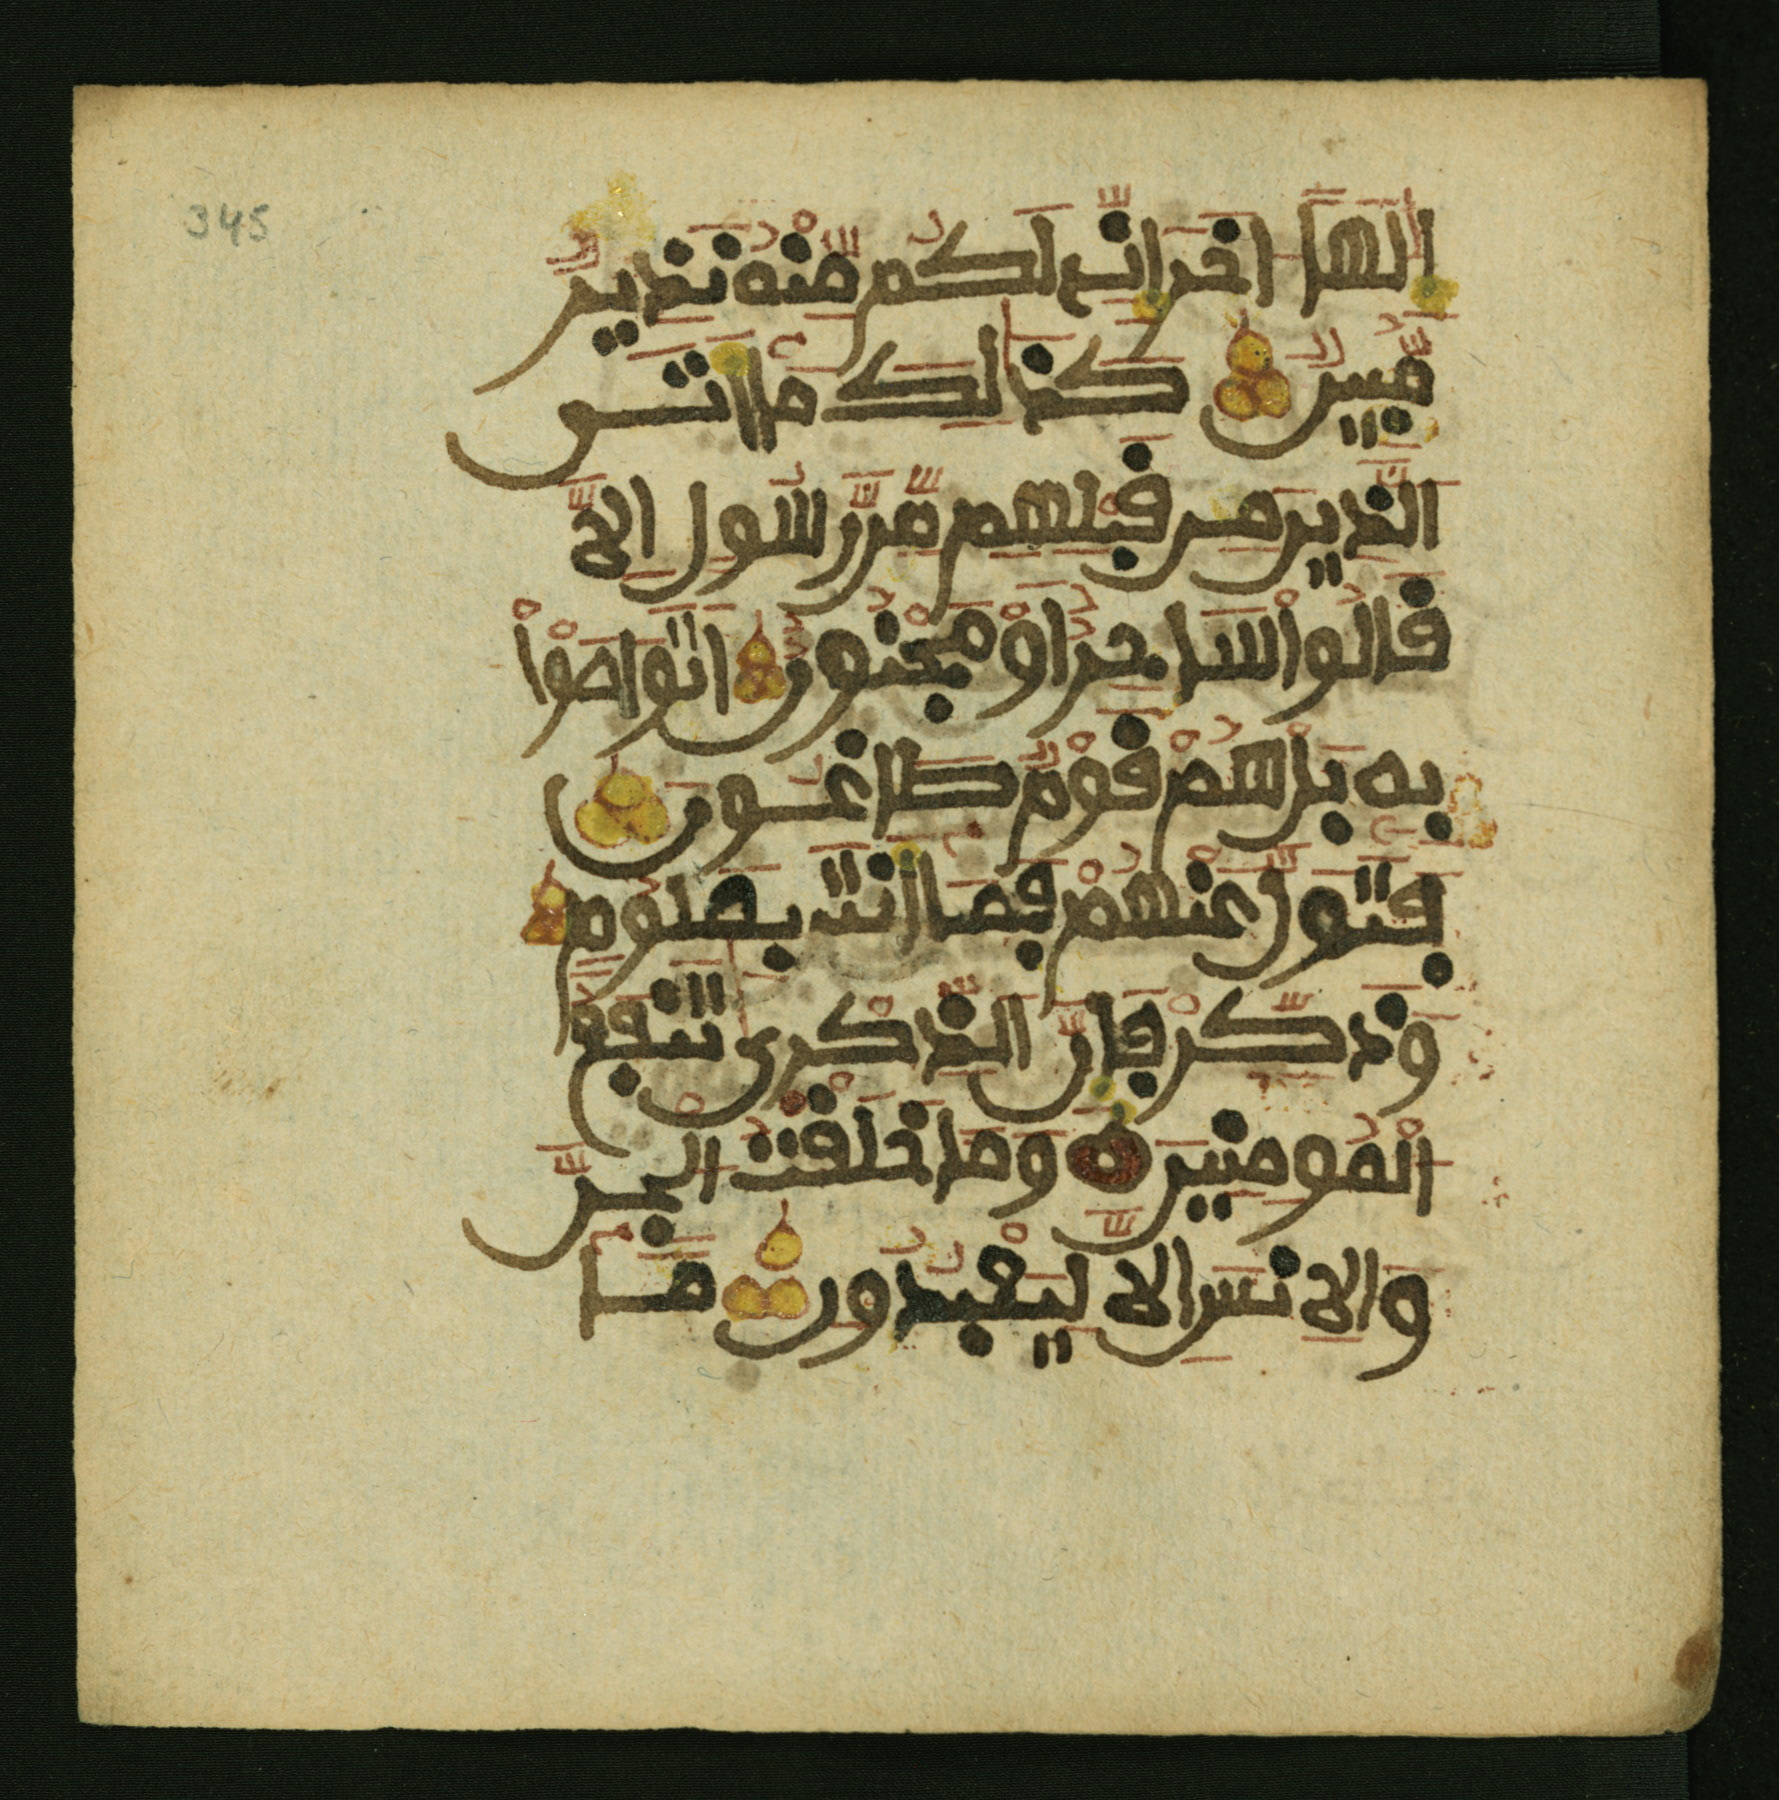 345
إِلَٰهًا ـاخَرَ إِنِّے لَكُم مِّنْهُ نَذِيرٌ
مُّبِينٌ كَذَٰلِكَ مَآ أَتَى
ٱلَّذِينَ مِن قَبْلِهِم مِّن رَّسُولٍ اِلَّا
قَالُواْ سَاحِرٌ اَوْ مَجْنُونٌ اَتَوَاصَوْاْ
بِهِۦ بَلْ هُمْ قَوْمٌ طَاغُونَ
فَتَوَلَّ عَنْهُمْ فَمَآ أَنتَ بِمَلُومٍ
وَذَكِّرْ فَإِنَّ ٱلذِّكْرَىٰ تَنفَعُ
ٱلْمُومِنِينَ وَمَا خَلَقْتُ ٱلْجِنَّ
وَٱلِانسَ إِلَّا لِيَعْبُدُونِ مَآ